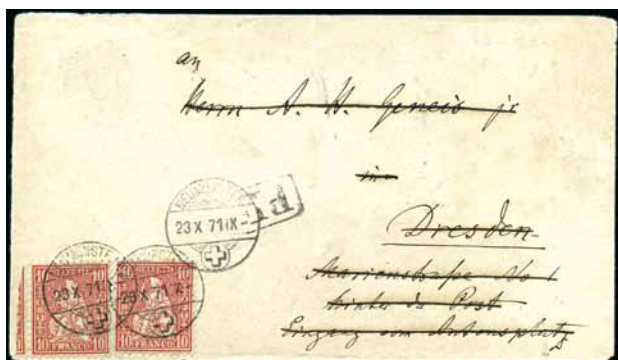 an
Herrn A. H. Geneis jr
in
Dresden
Marienstraße No 1
hinter der Post
Eingang vom Antonsplatz
23 X 71 IX-
23 X 71 IX-
23 X 71 X-
10 10
10 FRANCO 10
10 FRANCO 10